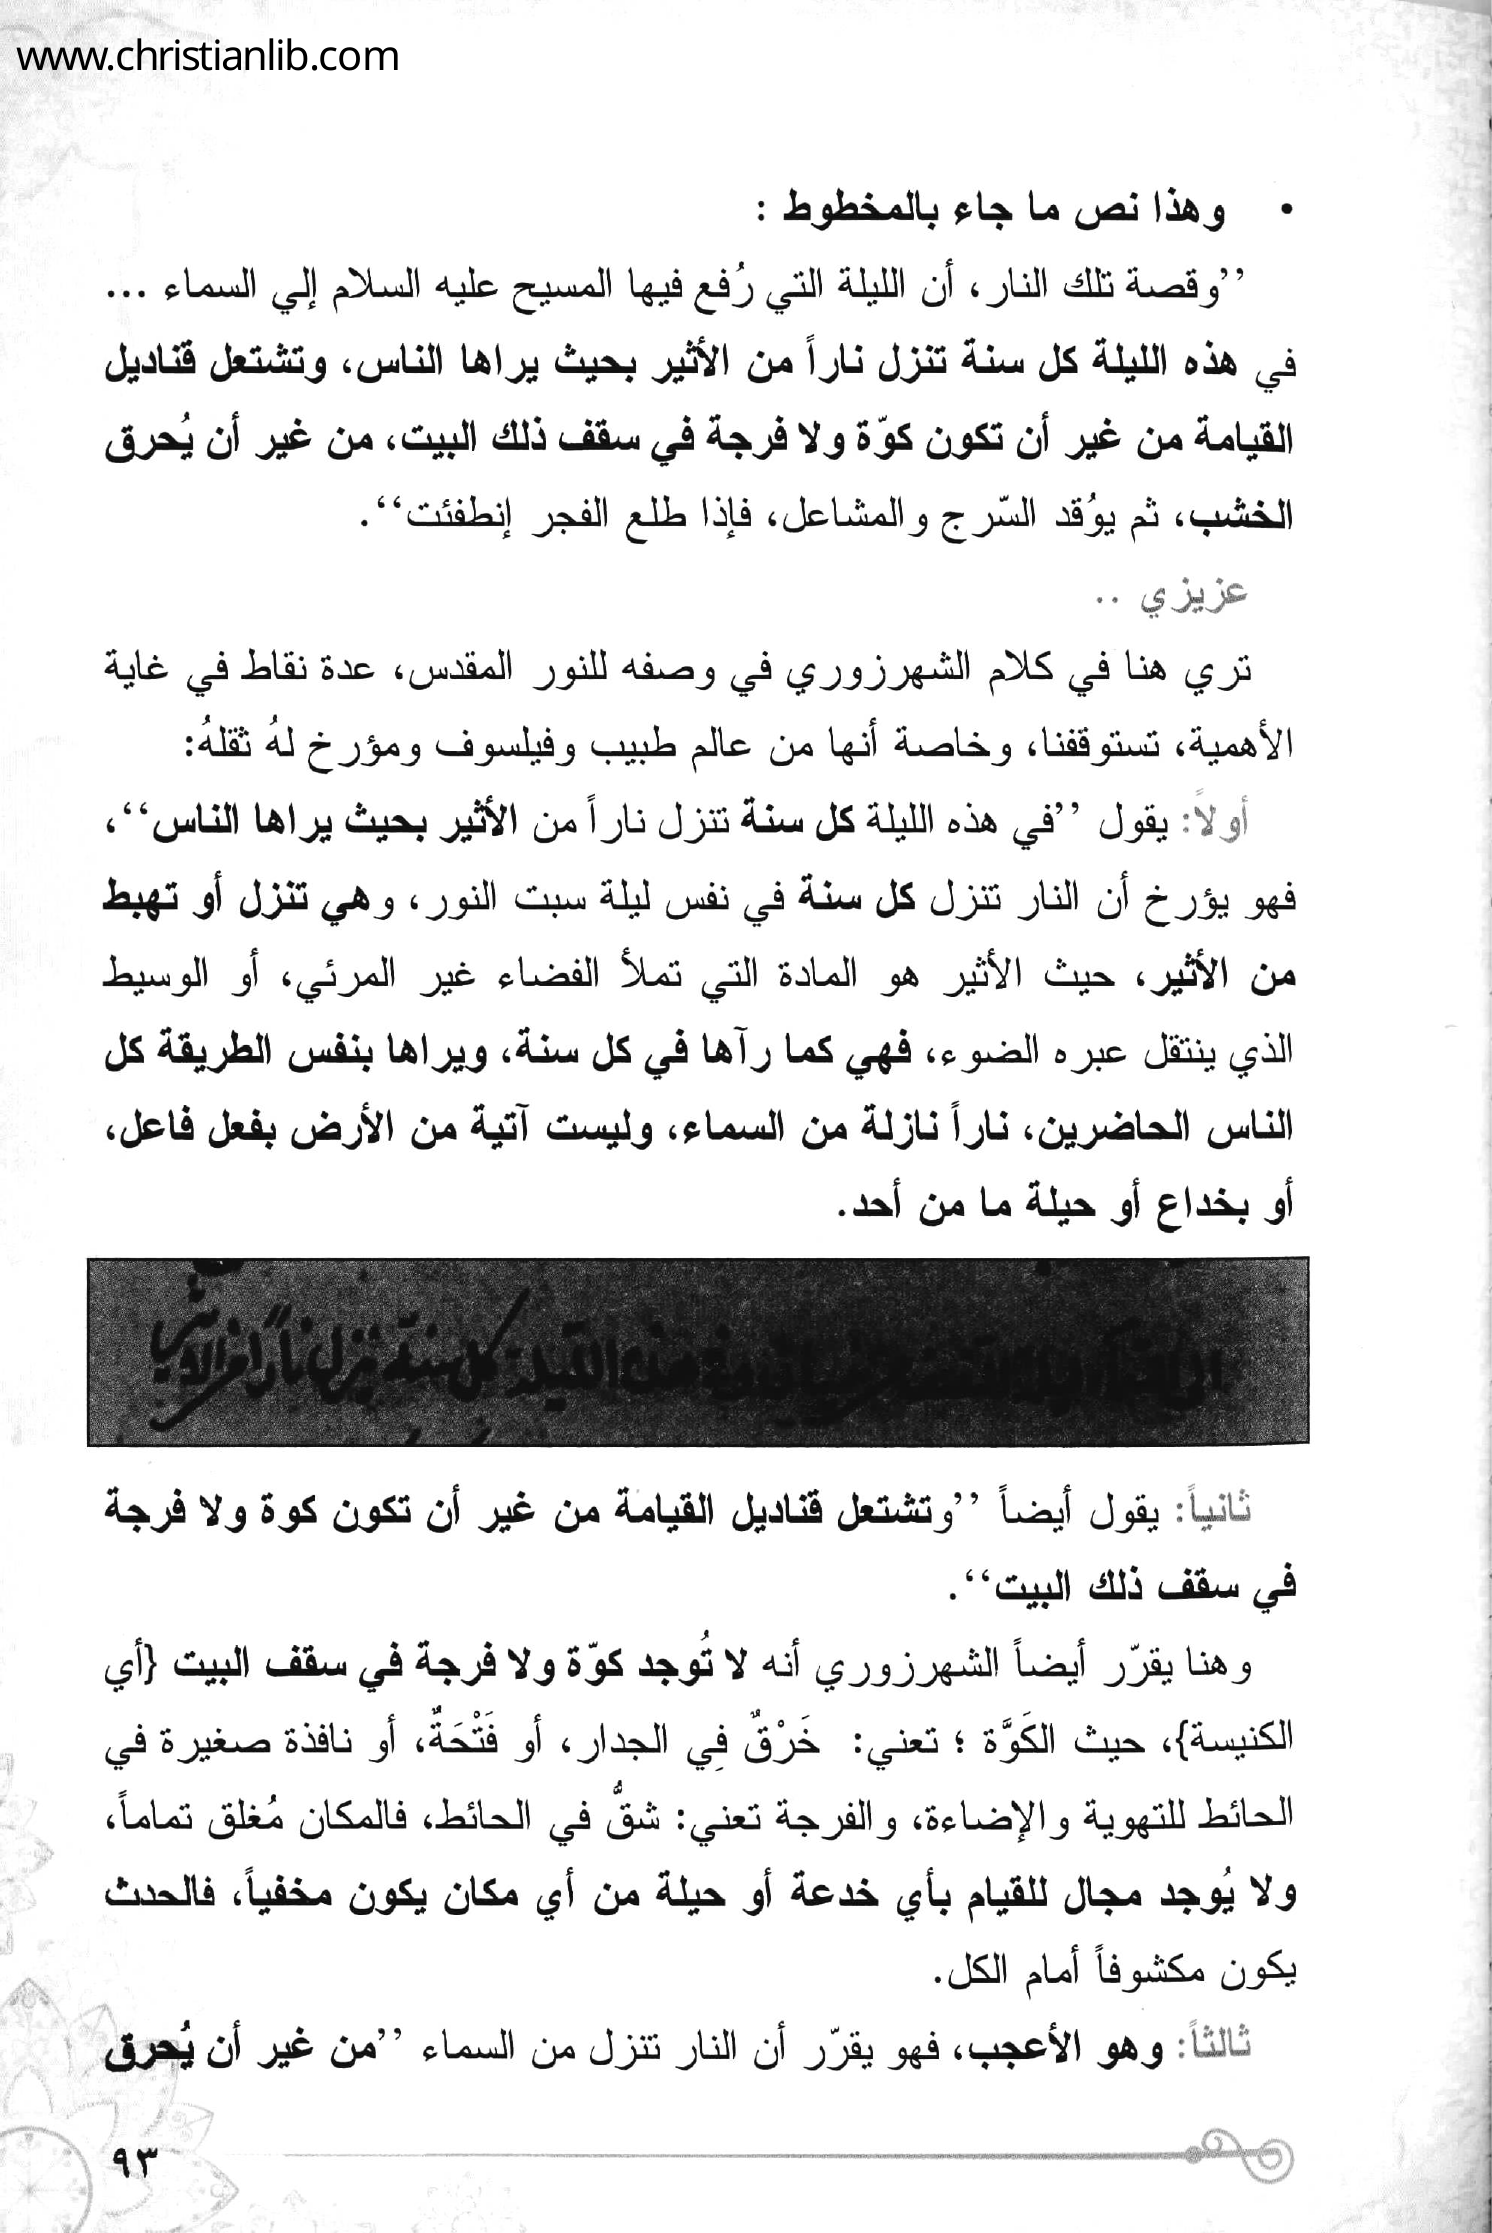 www.christianlib.com
• وهذا نص ما جاء بالمخطوط :
’’وقصة تلك النار، أن الليلة التي رُفع فيها المسيح عليه السلام إلي السماء ...
في هذه الليلة كل سنة تنزل ناراً من الأثير بحيث يراها الناس، وتشتعل قناديل
القيامة من غير أن تكون كوّة ولا فرجة في سقف ذلك البيت، من غير أن يُحرق
الخشب، ثم يوُقد السّرج والمشاعل، فإذا طلع الفجر إنطفئت‘‘.
عزيزي ..
تري هنا في كلام الشهرزوري في وصفه للنور المقدس، عدة نقاط في غاية
الأهمية، تستوقفنا، وخاصة أنها من عالم طبيب وفيلسوف ومؤرخ لهُ ثقلهُ:
أولاً: يقول ’’في هذه الليلة كل سنة تتزل ناراً من الأثير بحيث يراها الناس‘‘،
فهو يؤرخ أن النار تتزل كل سنة في نفس ليلة سبت النور، وهي تنزل أو تهبط
من الأثير، حيث الأثير هو المادة التي تملأ الفضاء غير المرئي، أو الوسيط
الذي ينتقل عبره الضوء، فهي كما رآها في كل سنة، ويراها بنفس الطريقة كل
الناس الحاضرين، ناراً نازلة من السماء، وليست آتية من الأرض بفعل فاعل،
أو بخداع أو حيلة ما من أحد.
في هذه الليلة كل سنة تنزل ناراً من الاثير
ثانياً: يقول أيضاً ’’وتشتعل قناديل القيامة من غير أن تكون كوة ولا فرجة
في سقف ذلك البيت‘‘.
وهنا يقرّر أيضاً الشهرزوري أنه لا تُوجد كوّة ولا فرجة في سقف البيت {أي
الكنيسة}، حيث الكَوَّة ؛ تعني: خَرْقٌ فِي الجدار، أو فَتْحَةٌ، أو نافذة صغيرة في
الحائط للتهوية والإضاءة، والفرجة تعني: شقٌّ في الحائط، فالمكان مُغلق تماماً،
ولا يُوجد مجال للقيام بأي خدعة أو حيلة من أي مكان يكون مخفياً، فالحدث
يكون مكشوفاً أمام الكل.
ثالثاً: وهو الأعجب، فهو يقرّر أن النار تتزل من السماء ’’من غير أن يُحرق
٩٣